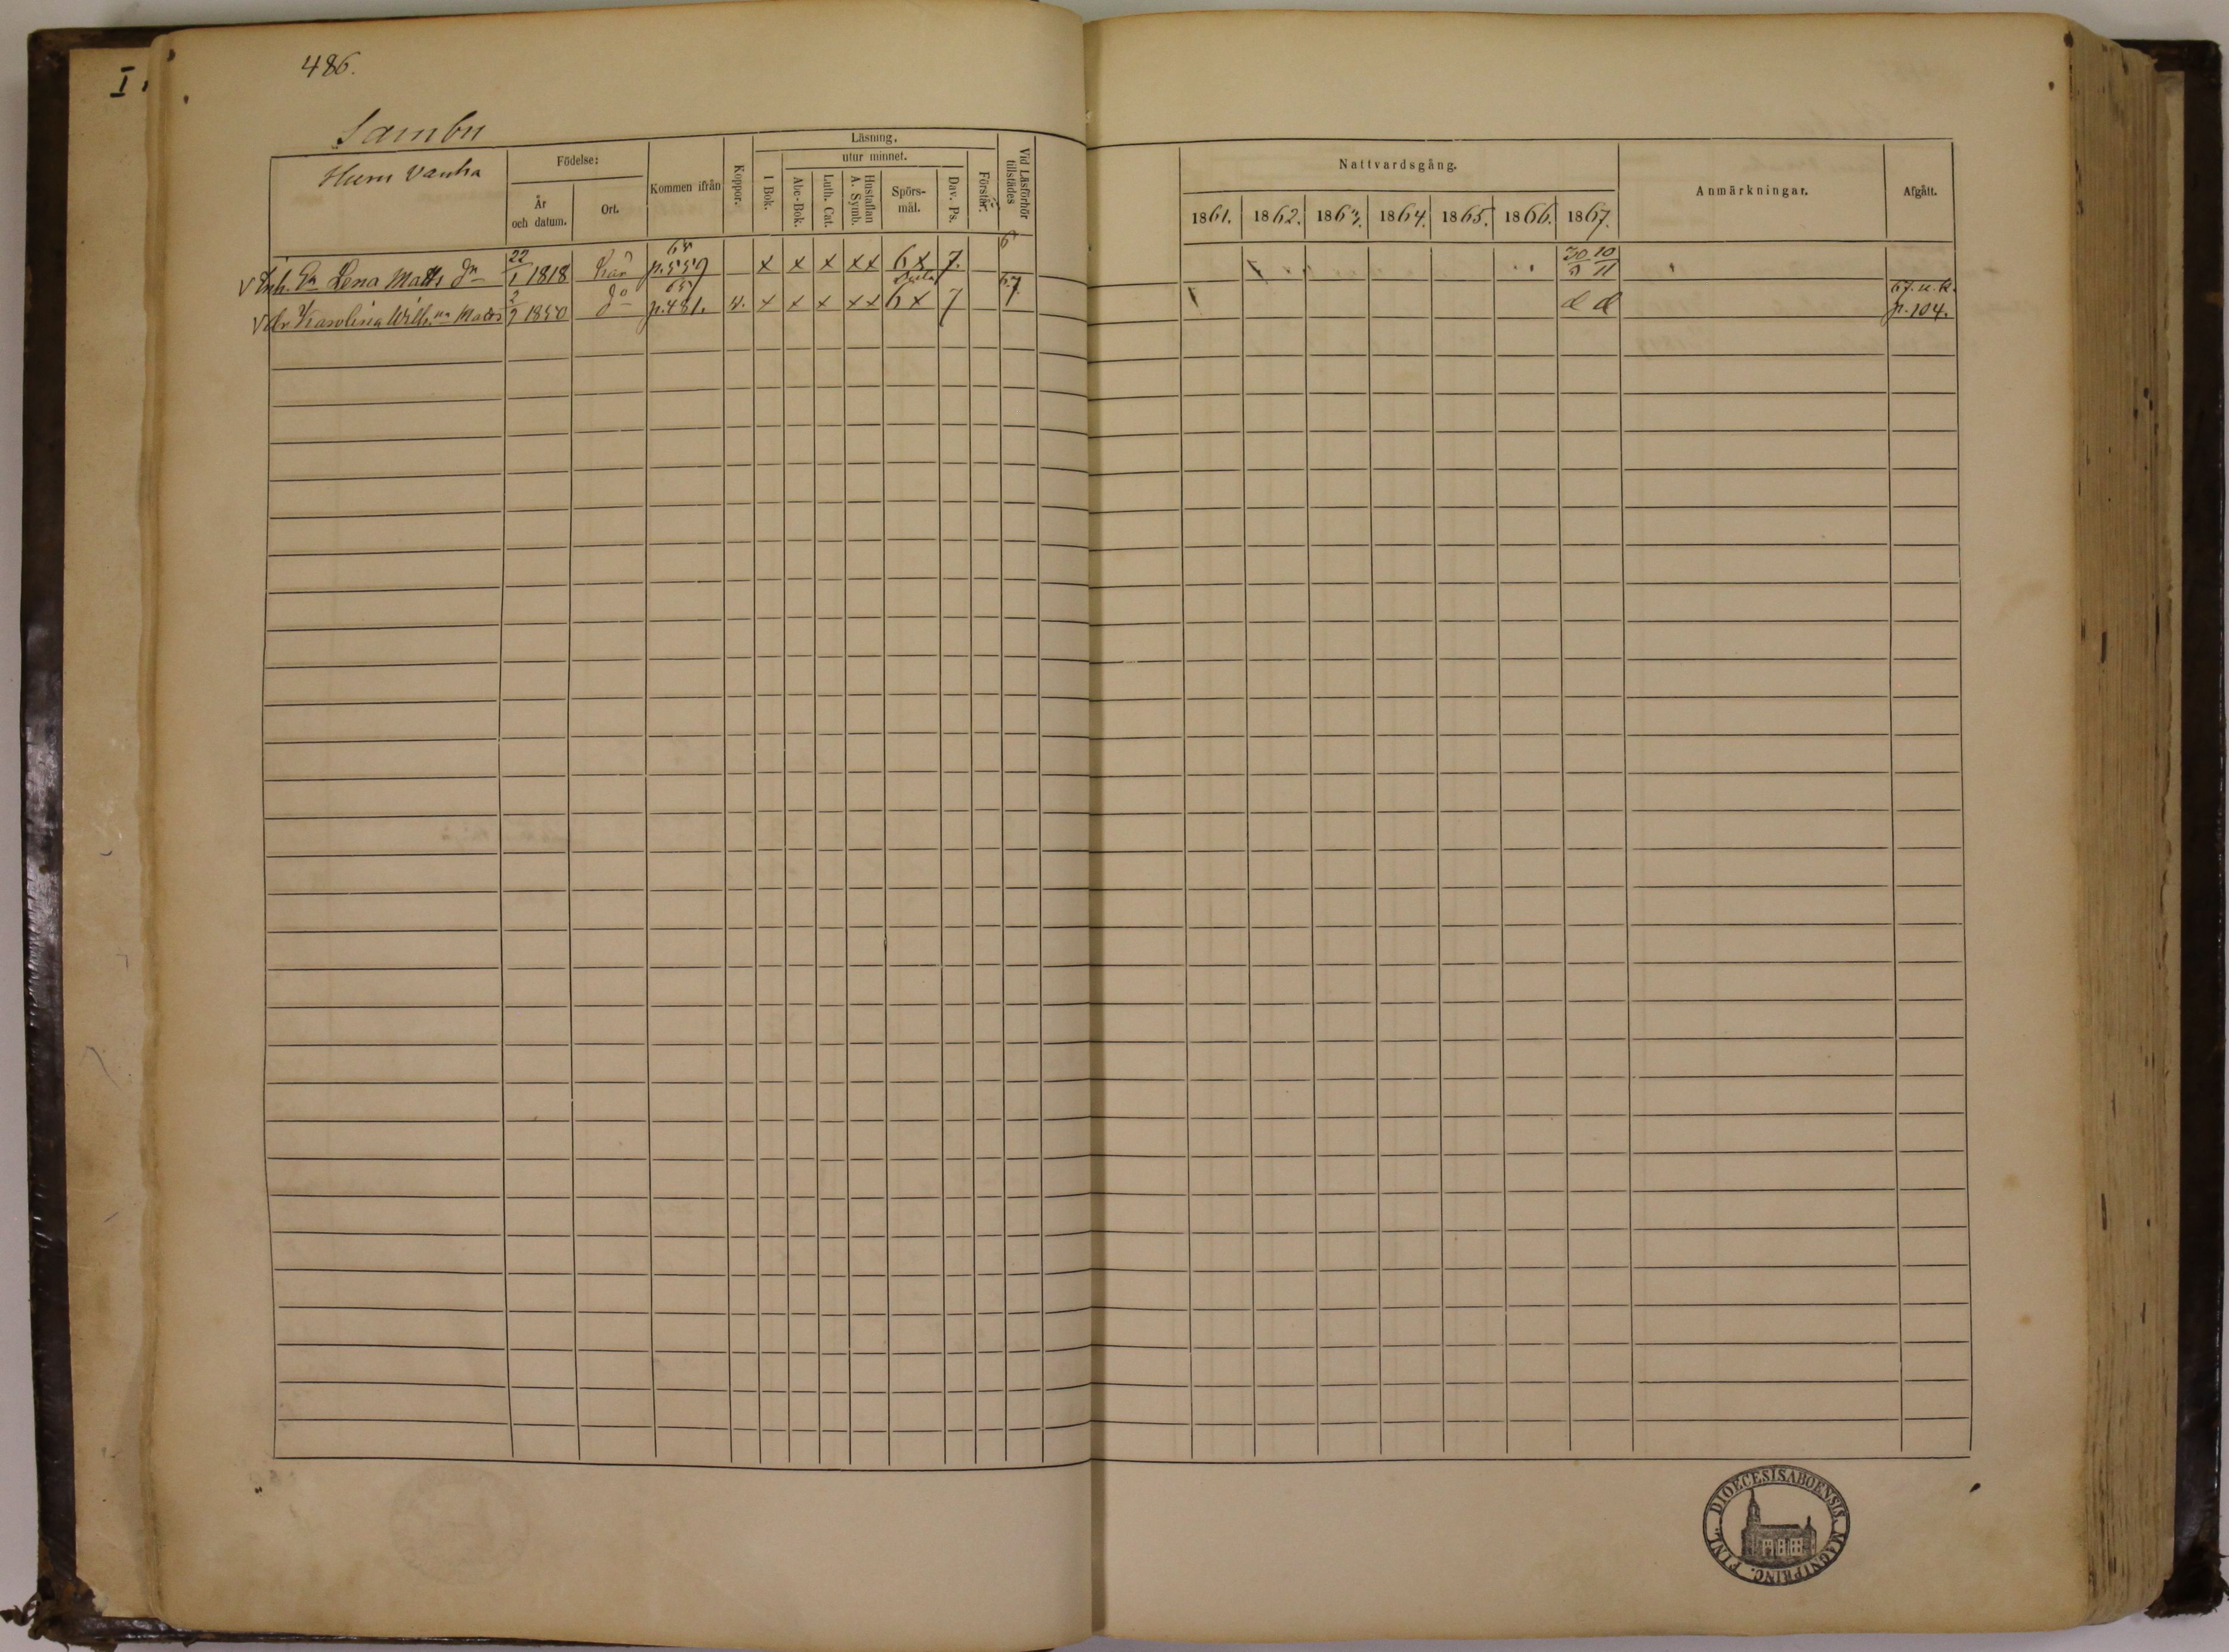 486.
I.
Sambu
Huru Vanha
Födelse:
År och datum.
Ort.
Kommen ifrån
Koppor.
Läsning,
utur minnet.
I Bok.
Abc-Bok.
Luth. Cat.
Hustaflan A. Symb.
Spörs-mål.
Dav. Ps.
Förstår.
Vid Läsförhör tillstädes
Nattvardsgång.
1861. 1862. 1863. 1864. 1865. 1866. 1867.
Anmärkningar.
Afgått.
Enk. Lena Matts dr 22/1 1818 Kar 65 p. 559 x x x x x 6 x 7. 6 30/3 10/11
Karolina Wilh.na Matts 2/9 1850 do 65 p. 481. v. x x x x x 6 x 7 6.7. d d 67. p. 104.
DIOECESIS ABOENSIS. MAGNI PRINC. FINL.